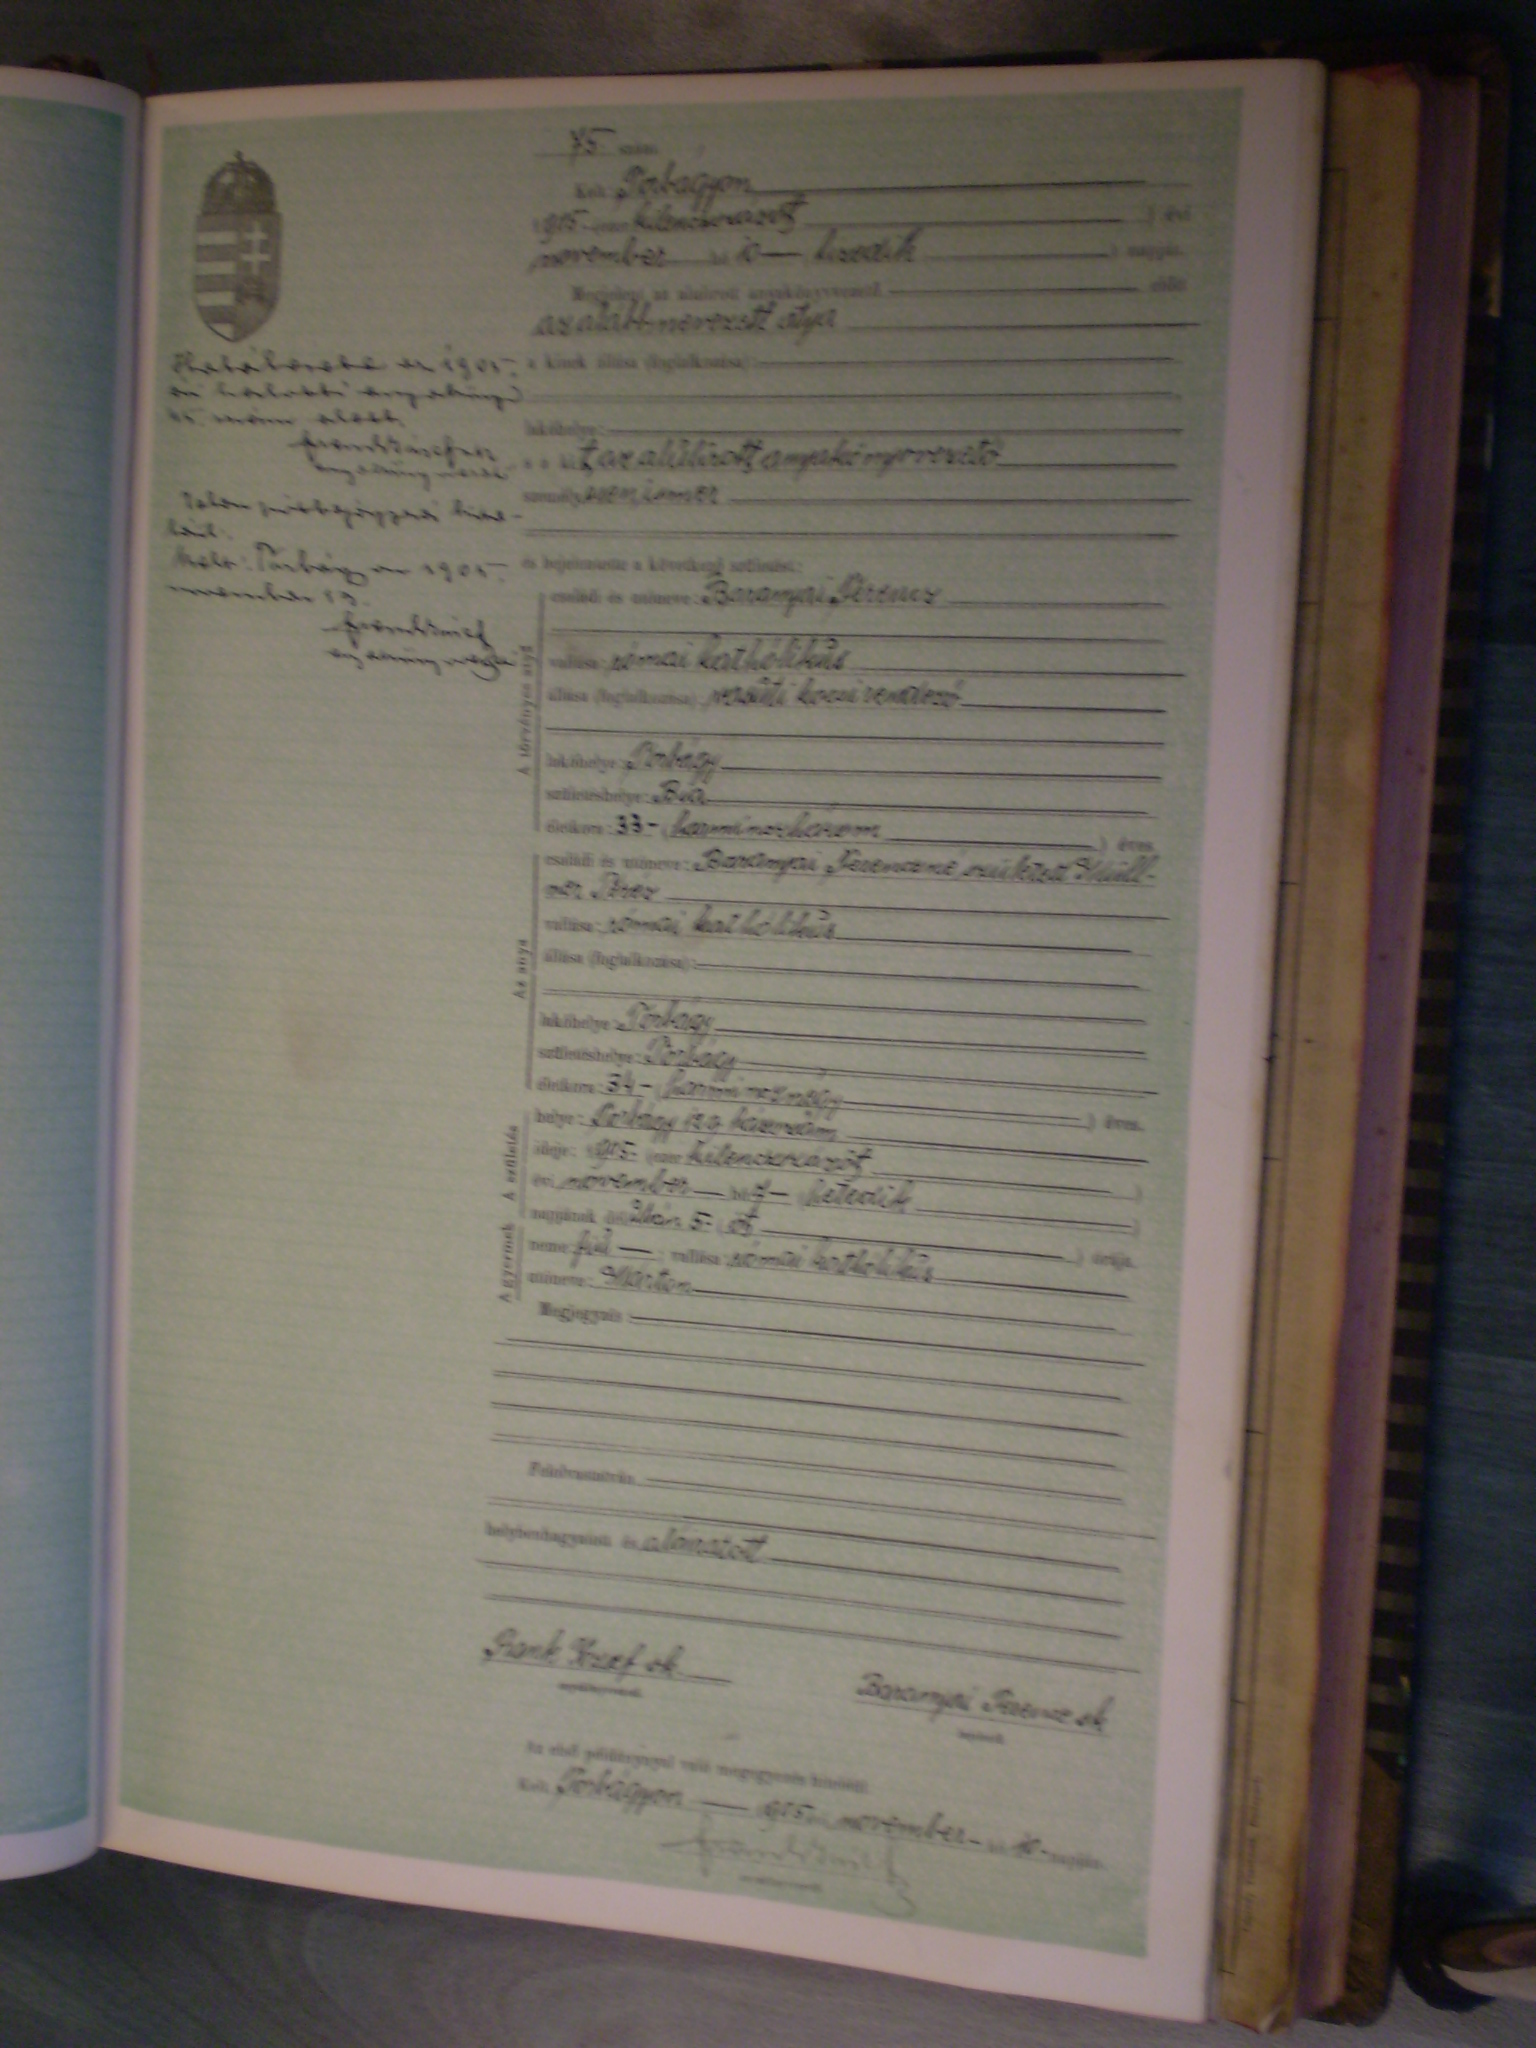 75 szám.
Kelt Torbágyon
1905 ezer kilenczszázöt ) évi
november hó 10 — tizedik ) napján.
Megjelent az alulírott anyakönyvvezető előtt
az alább nevezett atya
a kinek állása (foglalkozása):
lakóhelye:
a kit az alulírott anyakönyvvezető
személyesen ismer
és bejelentette a következő születést:
A törvényes atya
családi és utóneve: Baranyai Ferencz
vallása: római katholikus
állása (foglalkozása): vasúti kocsirendező
lakóhelye: Torbágy
születéshelye: Bia
életkora: 33 - (harminczhárom ) éves.
Az anya
családi és utóneve: Baranyai Ferenczné született Müll-
ner Teréz
vallása: római katholikus
állása (foglalkozása):
lakóhelye: Torbágy
születéshelye: Torbágy
életkora: 34 - (harmincznégy ) éves.
A születés
helye: Torbágy 120 házszám
ideje: 1905 - (ezer kilenczszázöt )
évi november — hó 7 — (hetedik )
napjának 5 - (öt ) órája.
A gyermek
neme: fiú — ; vallása: római katholikus
utóneve: Márton
Megjegyzés:
Felolvastatván,
helybenhagyatott és aláíratott
József sk.
anyakönyvvezető.
Baranyai Ferencz sk
bejelentő.
Az első példánnyal való megegyezés hitéül:
Kelt Torbágyon — 1905 november - hó 10 - napján.
anyakönyvvezető.
az 1905.
Kelt: Torbágyon 1905.
november